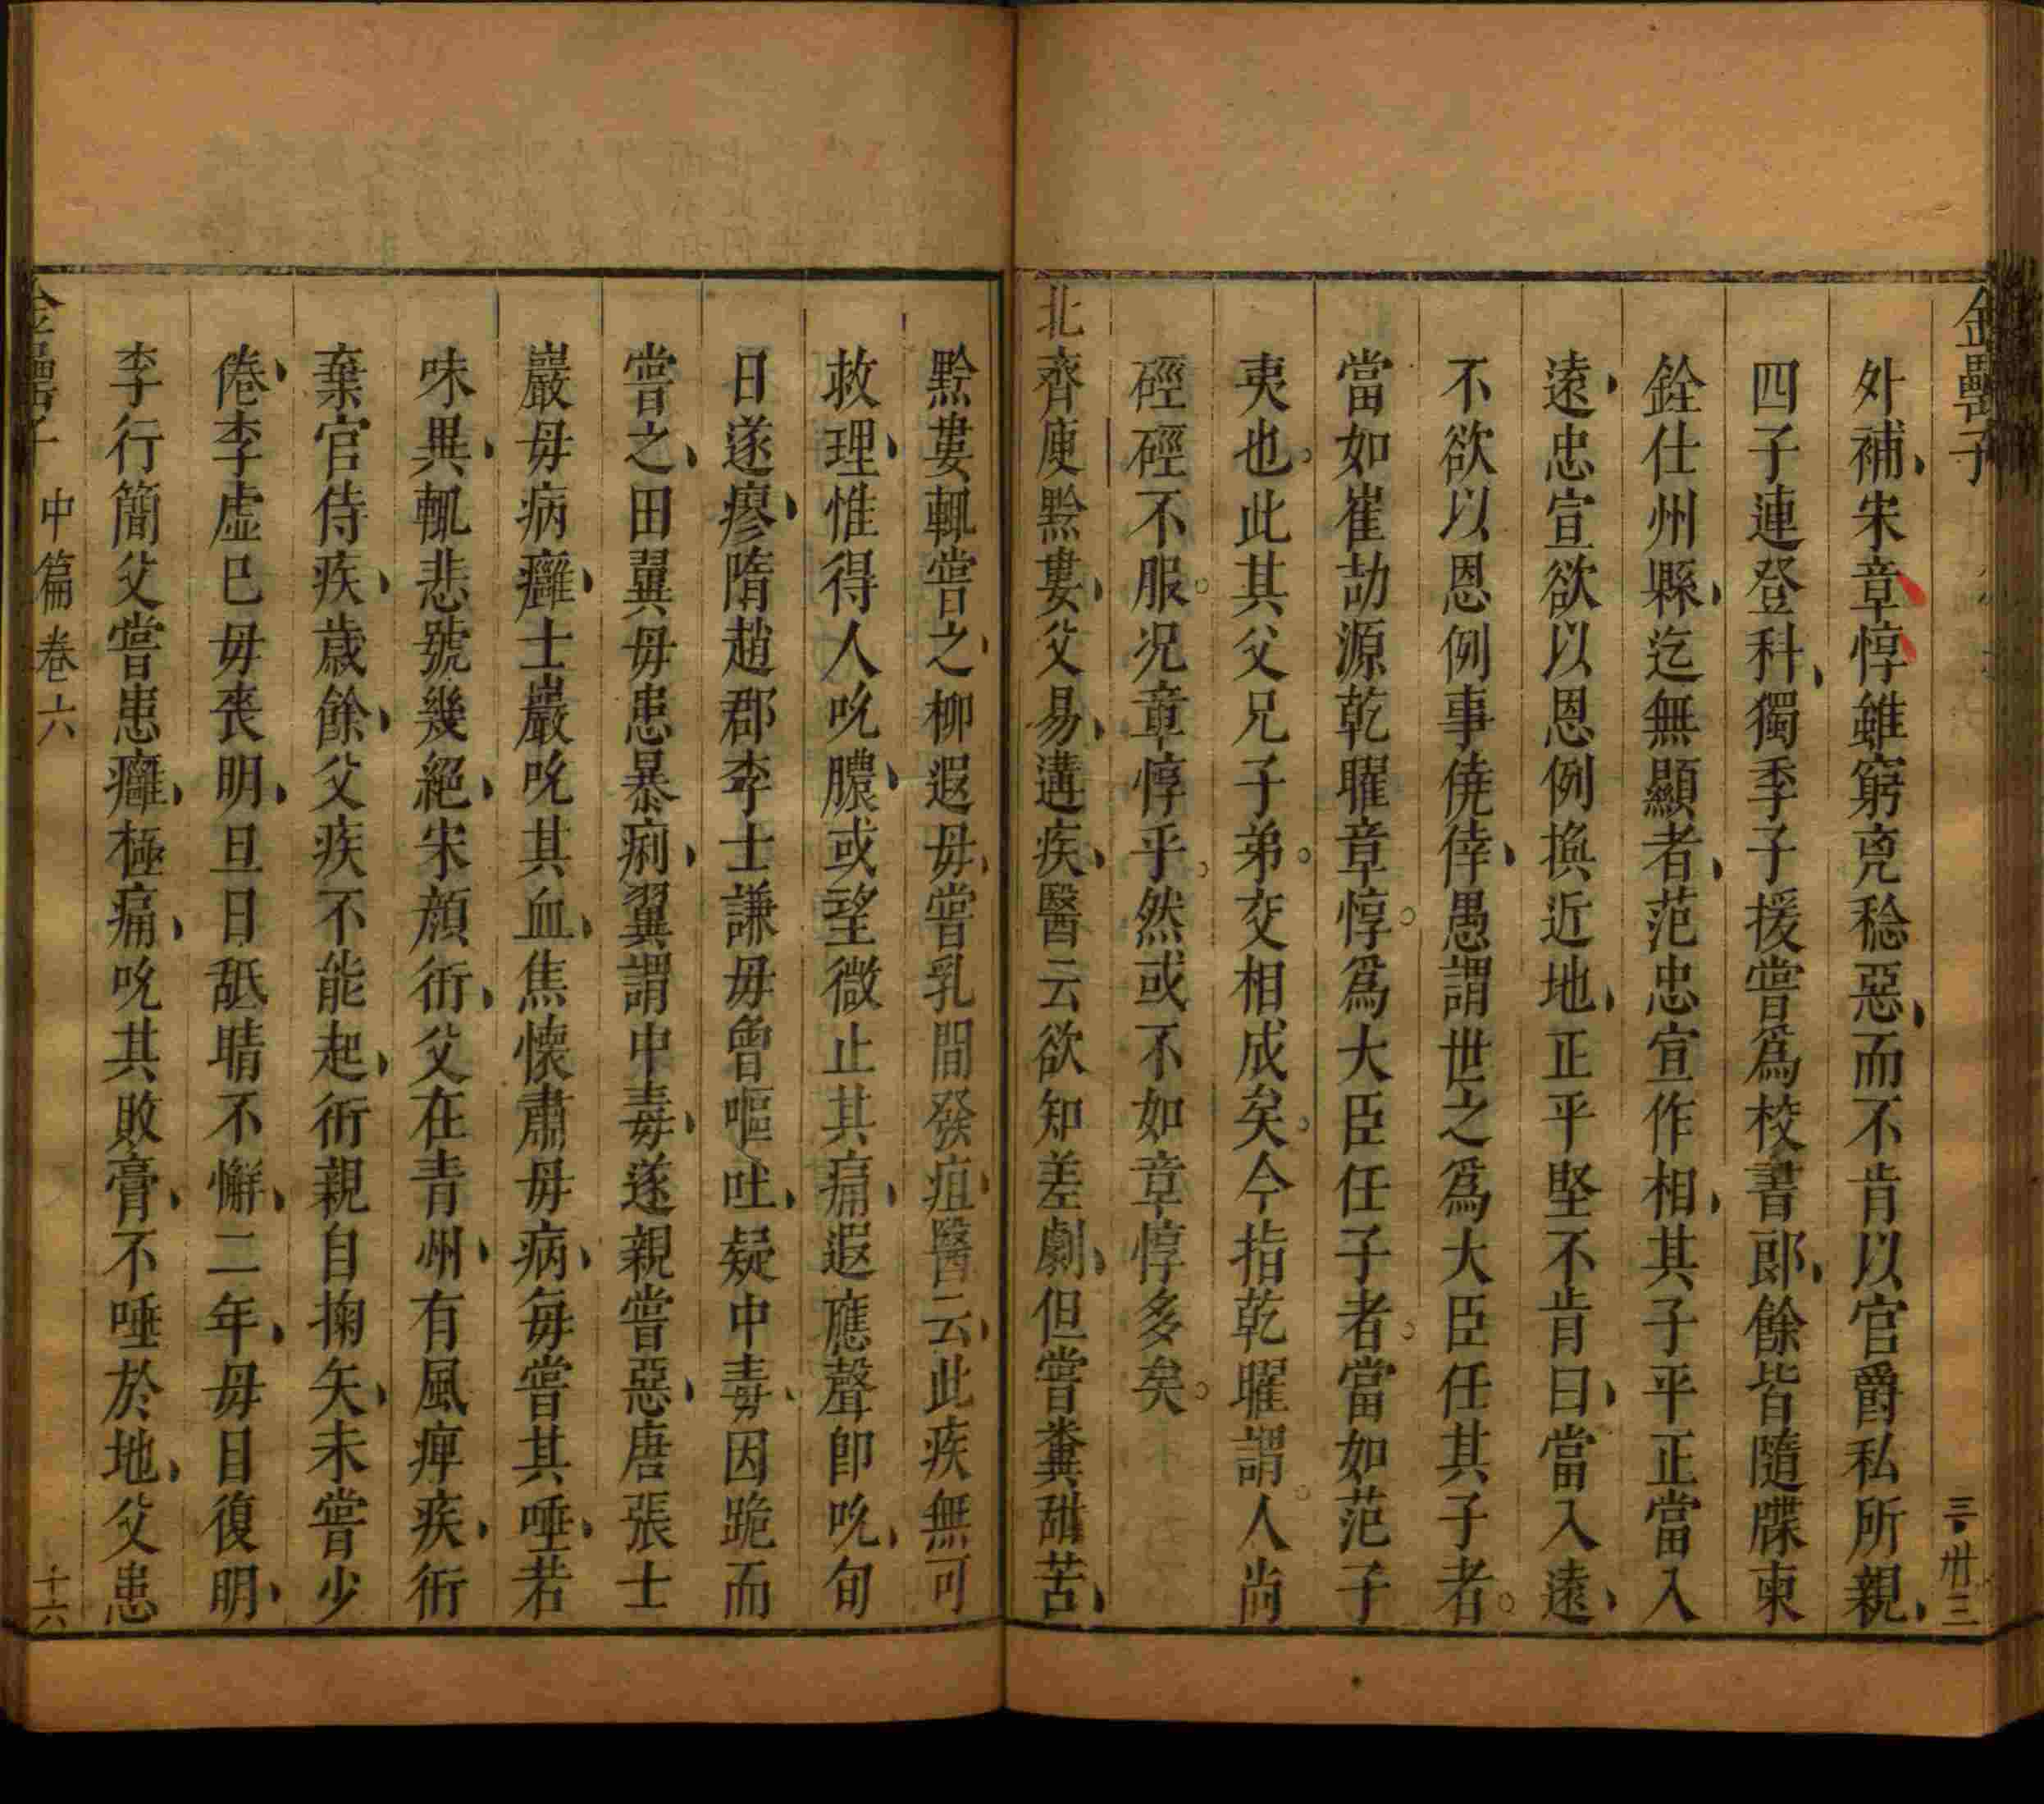 金罍子
三卅三
外補宋章惇雖窮兇稔惡而不肯以官爵私所親
四子連登科獨季子援嘗爲校書郎餘皆隨牒東
銓仕州縣迄無顯者范忠宣作相其子平正當入
遠忠宣欲以恩例換近地正平堅不肯曰當入遠
不欲以恩例事僥倖愚謂世之爲大臣任其子者
當如崔劼源乾曜章惇爲大臣任子者當如范子
夷也此其父兄子弟交相成矣今指乾曜謂人尚
硜硜不服况章惇乎然或不如章惇多矣
北齊庾黔婁父易遘疾醫云欲知差劇但嘗糞甜苦
黔婁輒嘗之柳遐母嘗乳間發疽醫云此疾無可
救理惟得人吮膿或望微止其痛遐應聲即吮旬
日遂瘳隋趙郡李士謙母曾嘔吐疑中毒因跪而
嘗之田翼母患暴痢翼謂中毒遂親嘗惡唐張士
巖母病癰士巖吮其血焦懷肅母病每嘗其唾若
味異輒悲號幾絕宋顔衎父在青州有風痺疾衎
棄官侍疾歲餘父疾不能起衎親自掬矢未嘗少
倦李虛巳母喪明旦日舐睛不懈二年母目復明
李行簡父嘗患癰極痛吮其敗膏不唾於地父患
金罍子 中篇卷六 十六